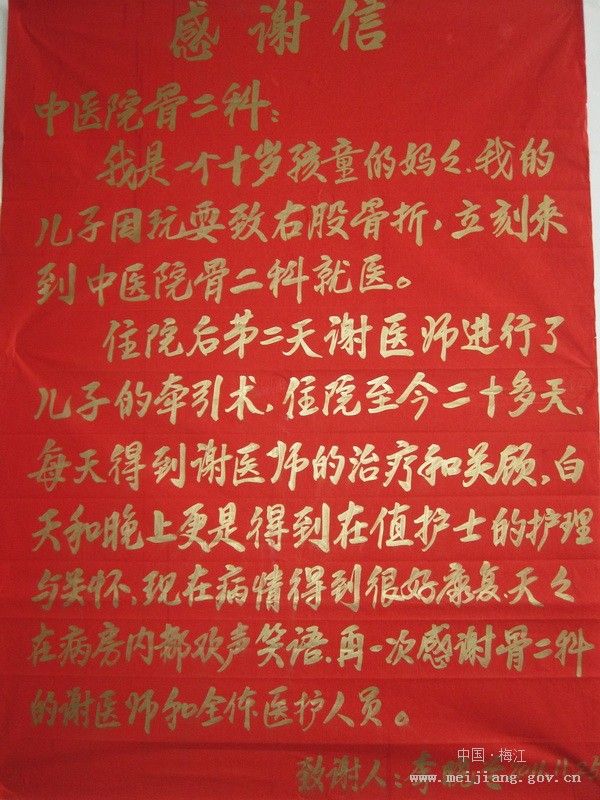 感谢信
中医院骨二科：
我是一个十岁孩童的妈々、我的
儿子因玩耍致右股骨折，立刻来
到中医院骨二科就医。
住院后第二天谢医师进行了
儿子的牵引术，住院至今二十多天、
每天得到谢医师的治疗和关顾、白
天和晚上更是得到在值护士的护理
与关怀、现在病情得到很好康复、天々
在病房内都欢声笑语、再一次感谢骨二科
的谢医师和全体医护人员。
致谢人：李
中国·梅江
www.meijiang.gov.cn